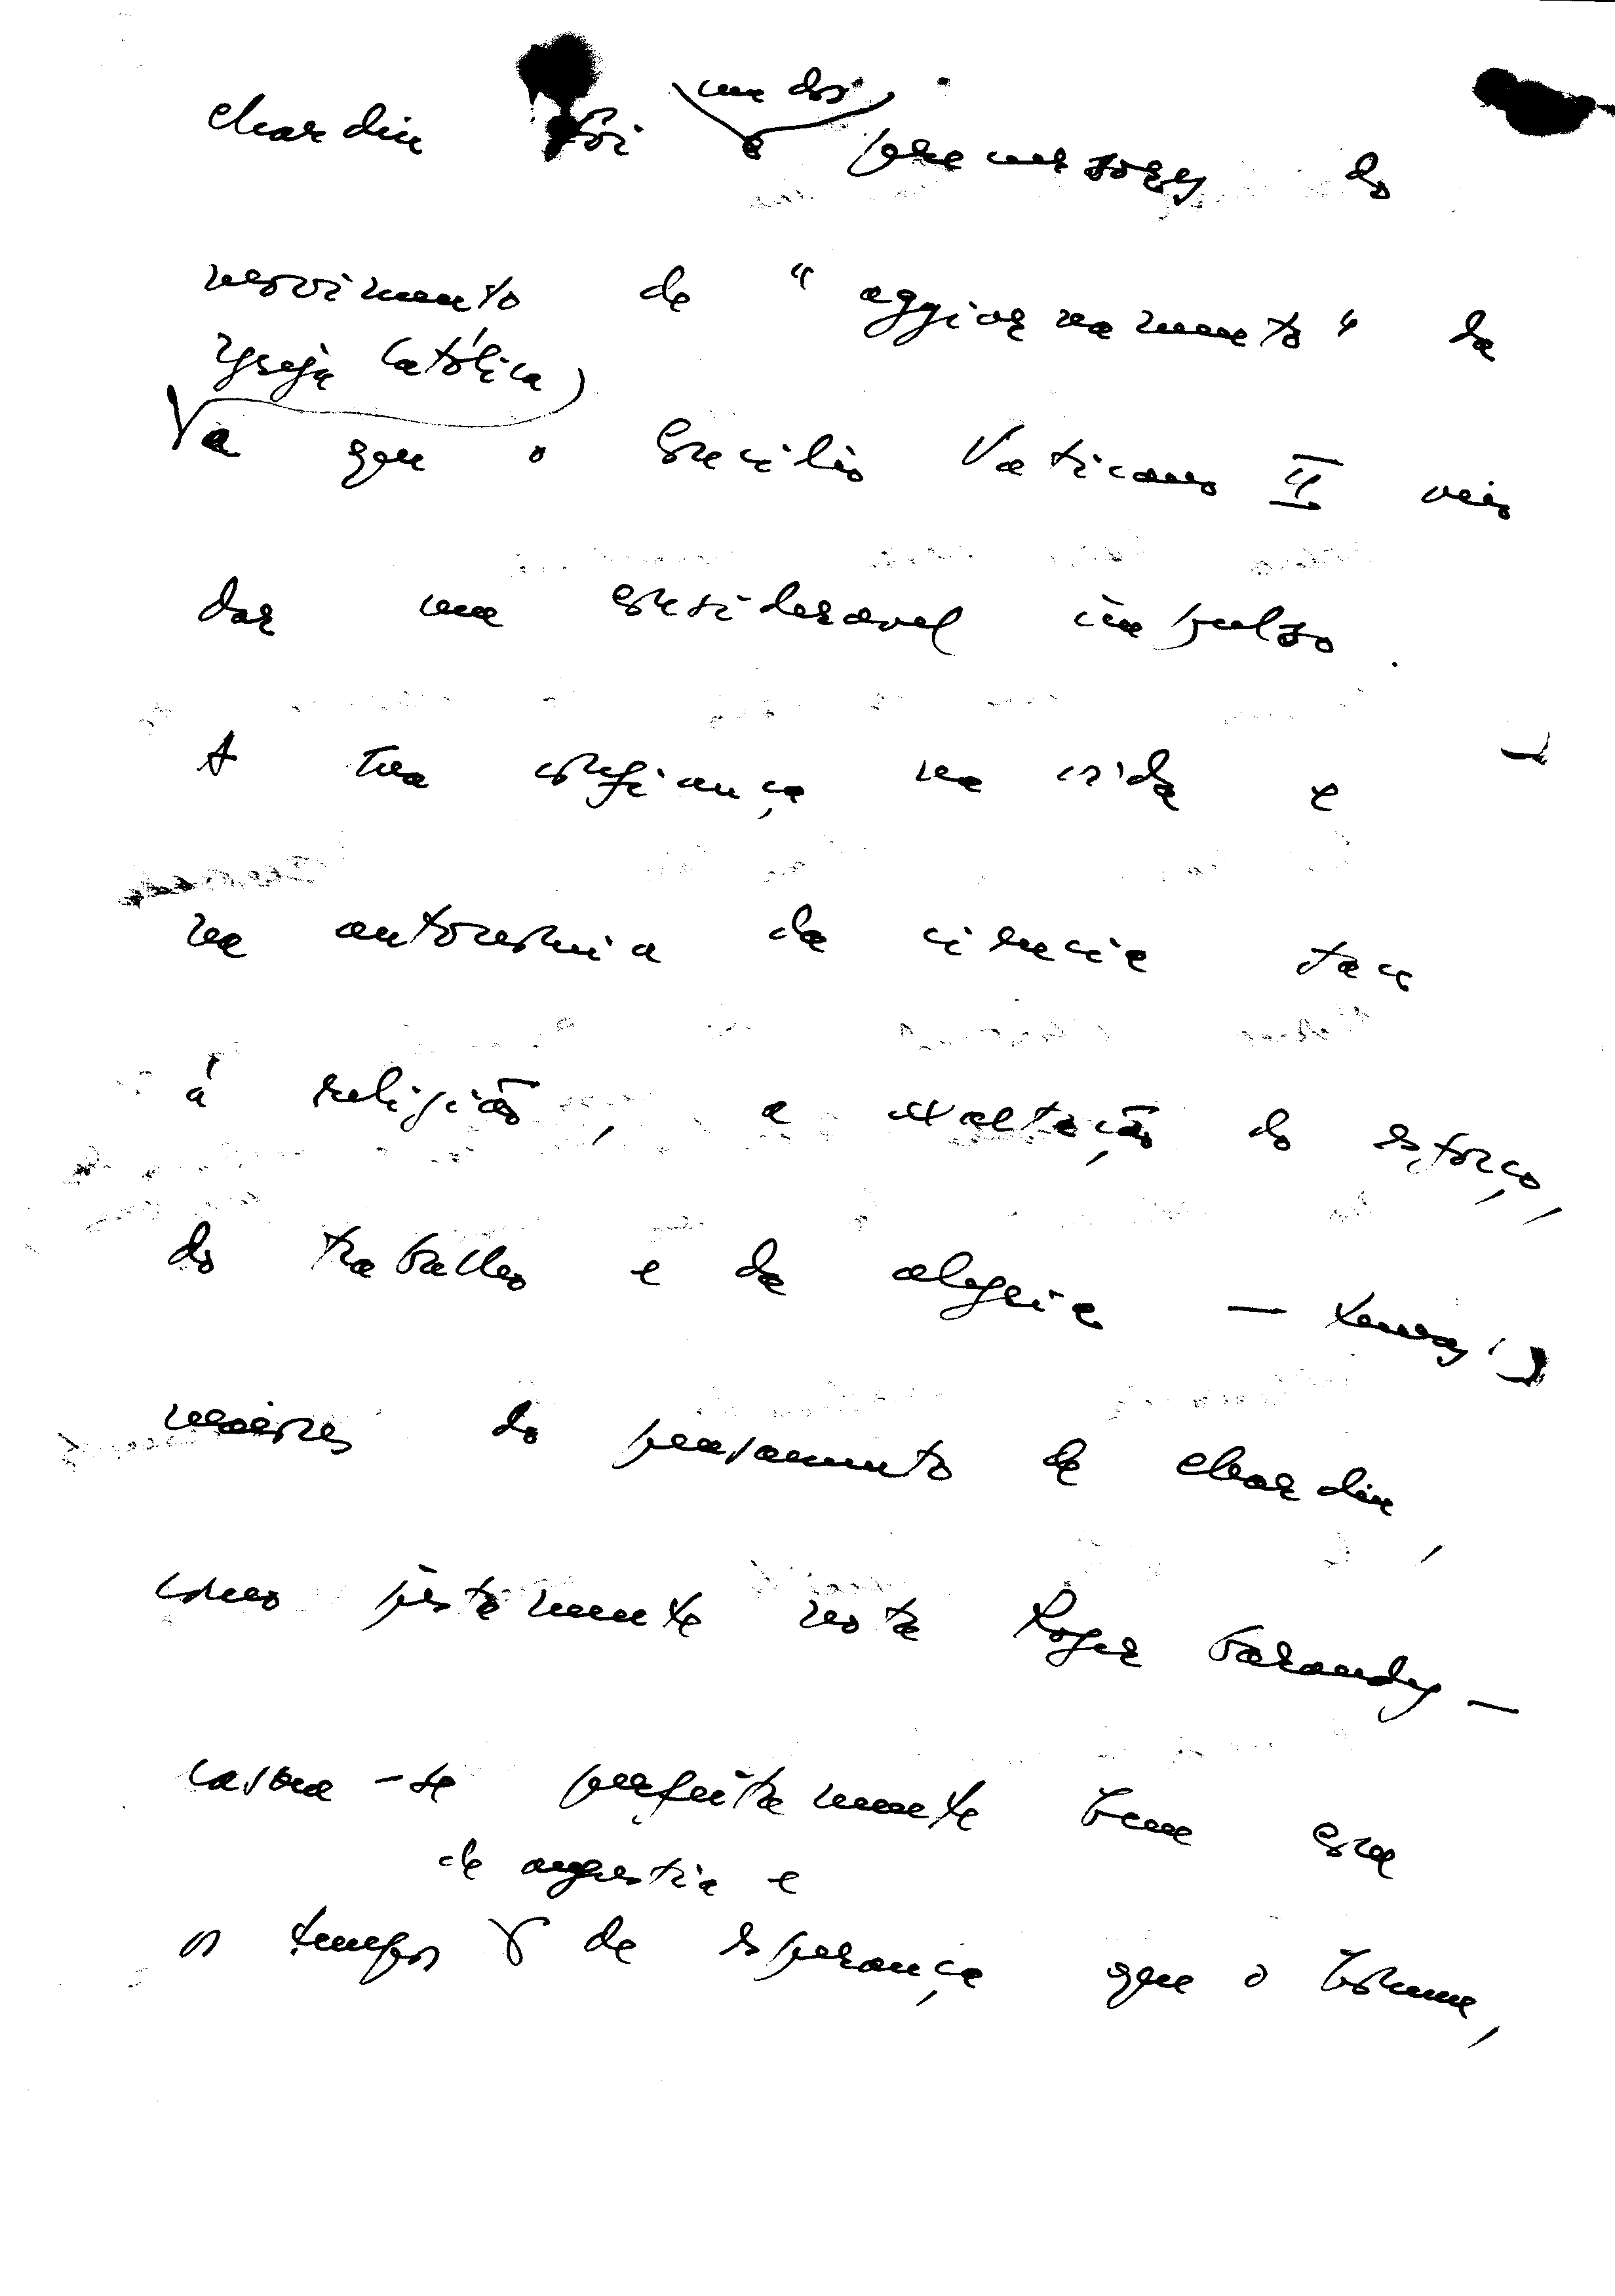 Chardin foi um dos precursores do
movimento de "aggiornamento" da
Igreja Católica
a que o Concilio Vaticano II veio
dar um consideravel impulso.
A sua confiança na vida e
na autonomia da ciencia face
á religião, a exaltação do esforço,
do trabalho e da alegria — temas
maiores do pensamento de Chardin,
como justamente nota Roger Garaudy —
casam-se perfeitamente bem com
de angustia e
os tempos de esperança que o homem,